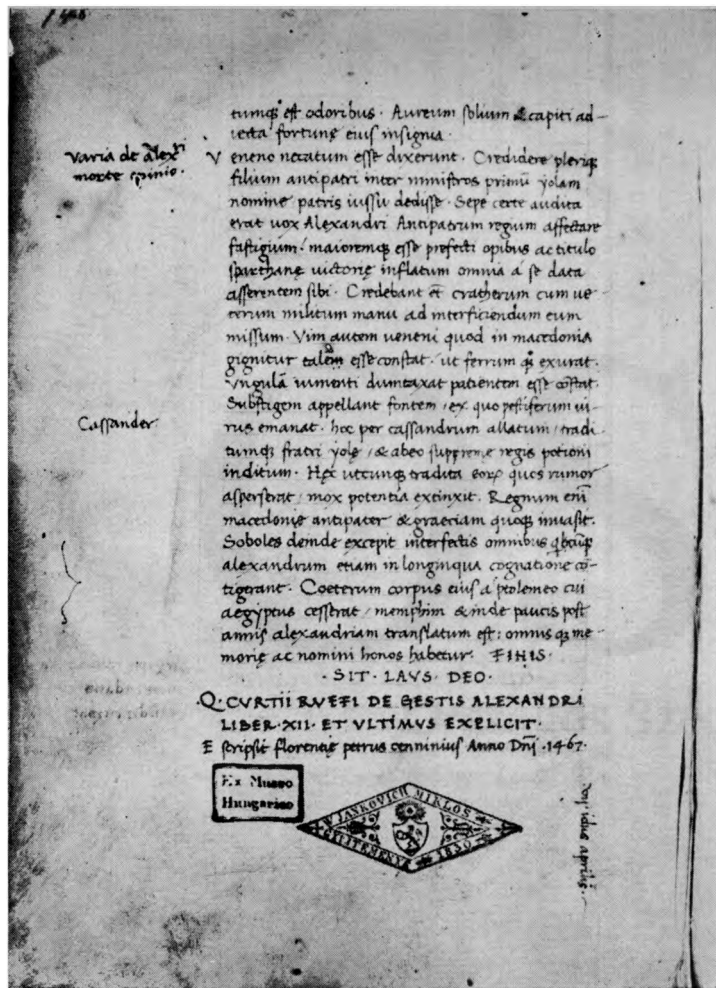 tumq; est odoribus. Aureum solium & capiti ad-
iecta fortune eius insignia.
Veneno necatum esse dixerunt. Credidere pleriq;
filium antipatri inter ministros primū yolam
nomine patris iussu dedisse. Sepe certe audita
erat uox Alexandri Antipatrum regium affectare
fastigium: maioremq; esse prefecti opibus ac titulo
sparthanę uictorię inflatum omnia a se data
asserentem sibi. Credebant et cratherum cum ue-
terum militum manu ad interficiendum eum
missum. Vim autem ueneni quod in macedonia
gignitur talem esse constat. ut ferrum q; exurat.
Vngulā iumenti dumtaxat patientem esse cōstat.
Substigem appellant fontem / ex quo pestiferum ui-
rus emanat. hoc per cassandrum allatum / tradi-
tumq; fratri yolę / & abeo supremę regis potioni
inditum. Hęc utcunq; tradita eorꝫ quos rumor
asperserat / mox potentia extinxit. Regnum enī
macedonię antipater & graeciam quoq; inuasit.
Soboles deinde excepit interfectis omnibus qbcūq;
alexandrum etiam in longinqua cognatione cō-
tigerant. Coeterum corpus eius a ptolemeo cui
aegyptus cesserat / memphim & inde paucis post
annis alexandriam translatum est: omnis q; me-
morię ac nomini honos habetur. FINIS.
· SIT · LAVS · DEO ·
·Q· CVRTII RVFFI DE GESTIS ALEXANDRI
LIBER · XII · ET VLTIMVS EXPLICIT ·
E scripsit florentię petrus cenninius Anno Dnī · 1467 ·
varia de alexri
morte opinio.
Cassander
idus aprilis.
Ex Museo
Hungarico
JANKOVICH MIKLOS
1830